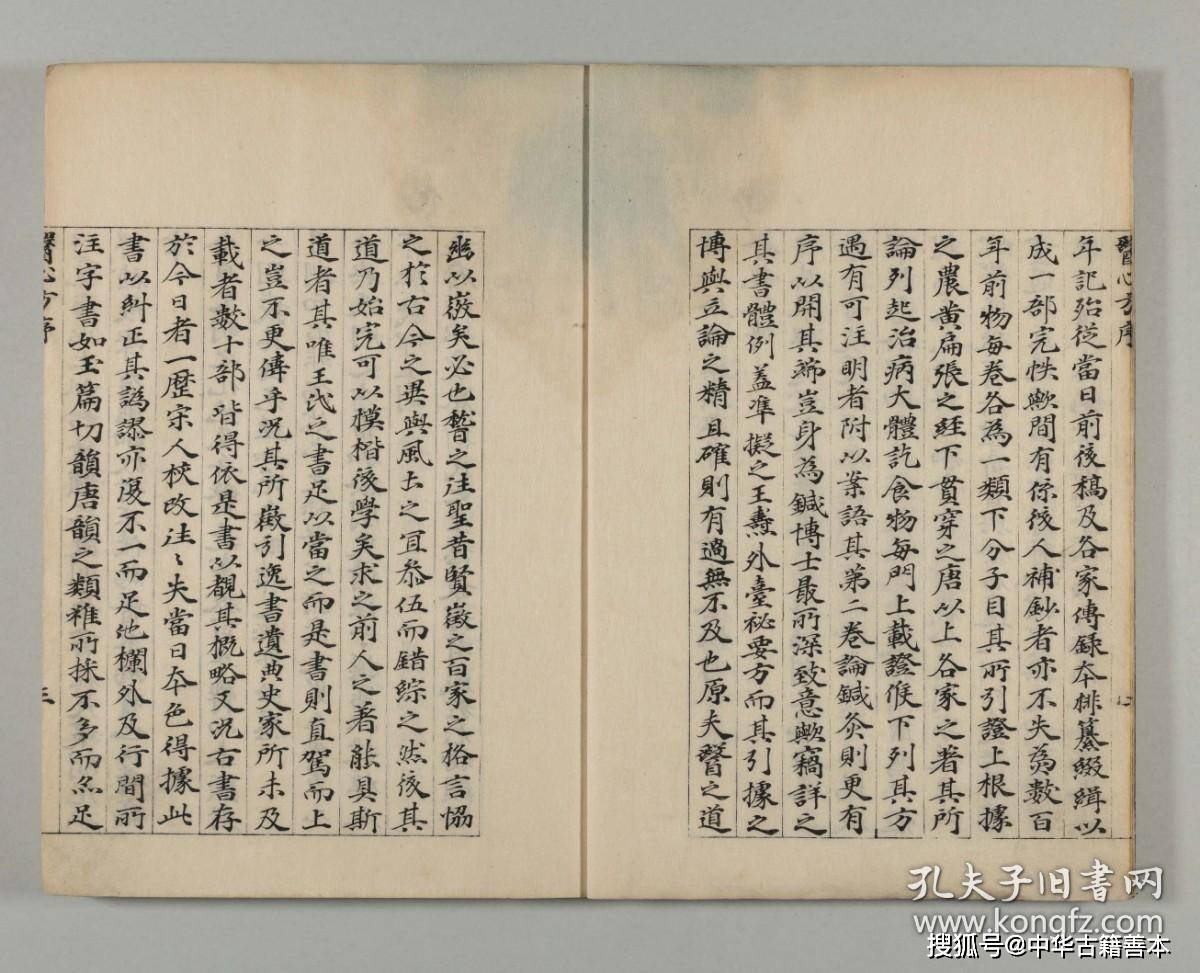 醫心方序
年記殆從當日前後稿及各家傳録本排纂綴緝以
成一部完帙歟間有係後人補鈔者亦不失為數百
年前物每卷各為一類下分子目其所引證上根據
之農黄扁張之經下貫穿之唐以上各家之著其所
論列起治病大體訖食物每門上載證候下列其方
遇有可注明者附以案語其第二卷論鍼灸則更有
序以開其端豈身為鍼博士最所深致意歟竊詳之
其書體例蓋準擬之王燾外臺秘要方而其引據之
博與立論之精且確則有過無不及也原夫醫之道
幽以微矣必也
稽之往聖昔賢徵之百家之格言恊
之於古今之異與風土之宜叅伍而錯綜之然後其
道乃始完可以模楷後學矣求之前人之著能具斯
道者其唯王氏之書足以當之而是書則直駕而上
之豈不更偉乎況其所徵引逸書遺典史家所未及
載者數十部皆得依是書以覩其概略又況右書存
於今日者一歷宋人校改往〻失當日本色得據此
書以糾正其譌謬亦復不一而足他欄外及行間所
注字書如玉篇切韻唐韻之類雖所採不多而亦足
醫心方序
三
孔夫子旧书网
www.kongfz.com
搜狐号@中华古籍善本